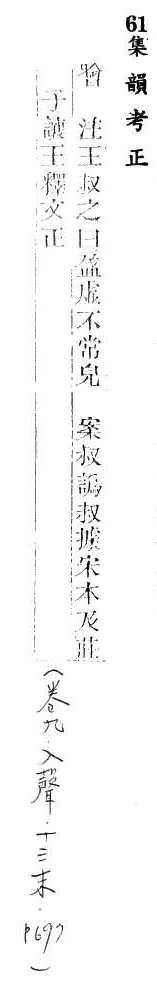 61 集韻考正
噲 注王叔之曰盈虛不常皃 案叔譌叔據宋本及莊
子讓王釋文正
(卷九.入聲.十三末.P697)